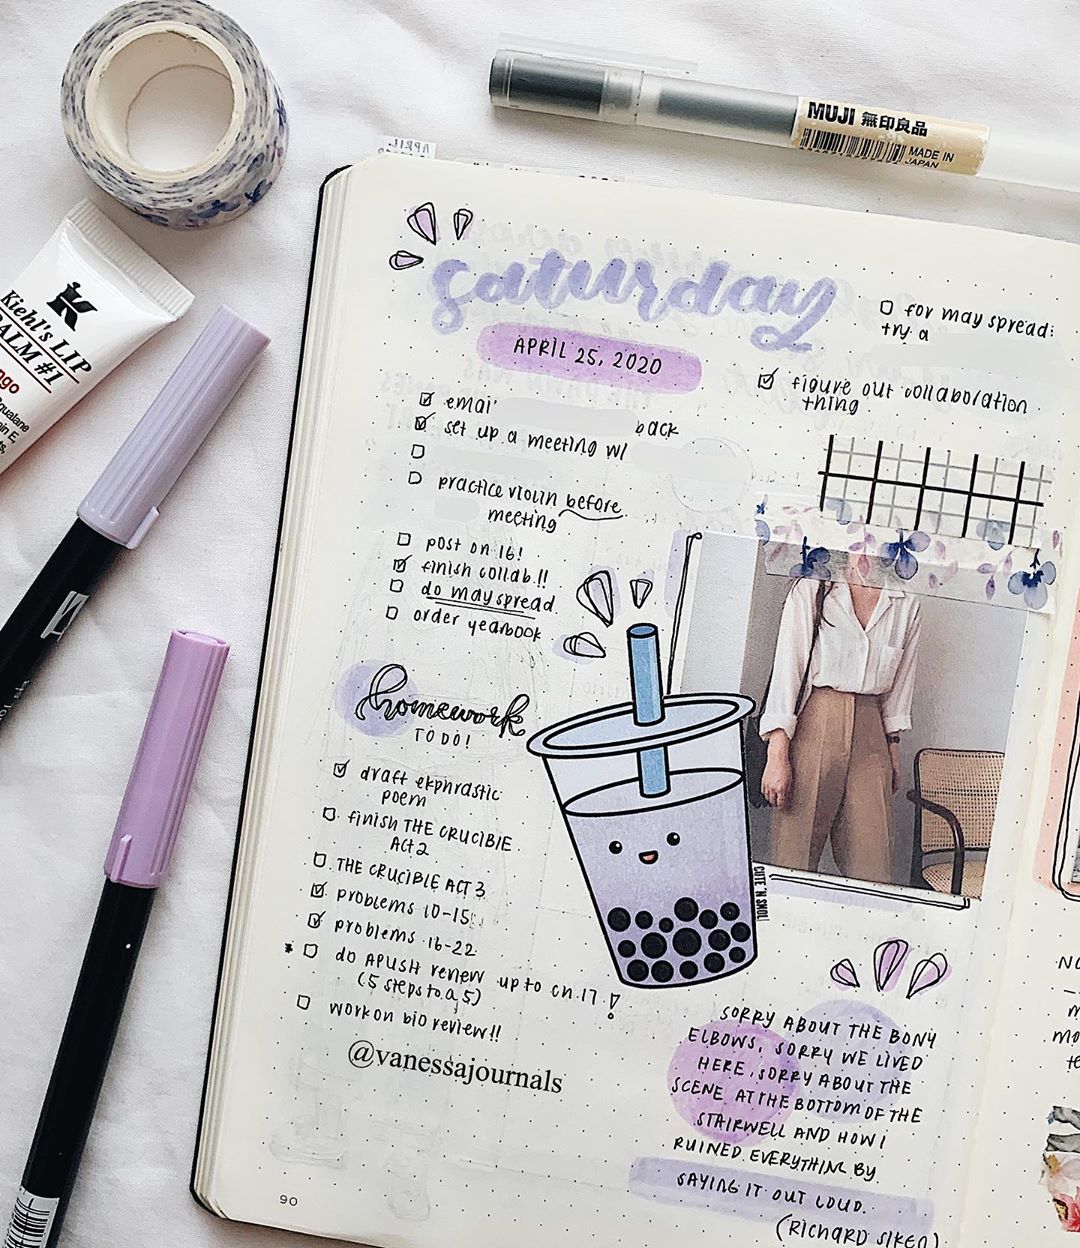 MUJI 無印良品
MADE IN
JAPAN
APRIL
Kiehl's LIP
ALM #1
ngo
qualane
min E.
saturday
APRIL 25, 2020
for may spread:
try a
figure out collaboration
thing
email
back
set up a meeting w/
practice violin before
meeting
post on 16!
finish collab!!
do may spread
order yearbook
homework
TO DO!
draft ekphrastic
poem
finish THE CRUCIBLE
ACT 2
THE CRUCIBLE ACT 3
problems 10-15
problems 16-22
* do APUSH review up to ch.17!
(5 steps to a 5)
work on bio review!!
@vanessajournals
CUTE 'N SMOL!
SORRY ABOUT THE BONY
ELBOWS, SORRY WE LIVED
HERE, SORRY ABOUT THE
SCENE AT THE BOTTOM OF THE
STAIRWELL AND HOW I
RUINED EVERYTHING BY
SAYING IT OUT LOUD.
(RICHARD SIKEN)
90